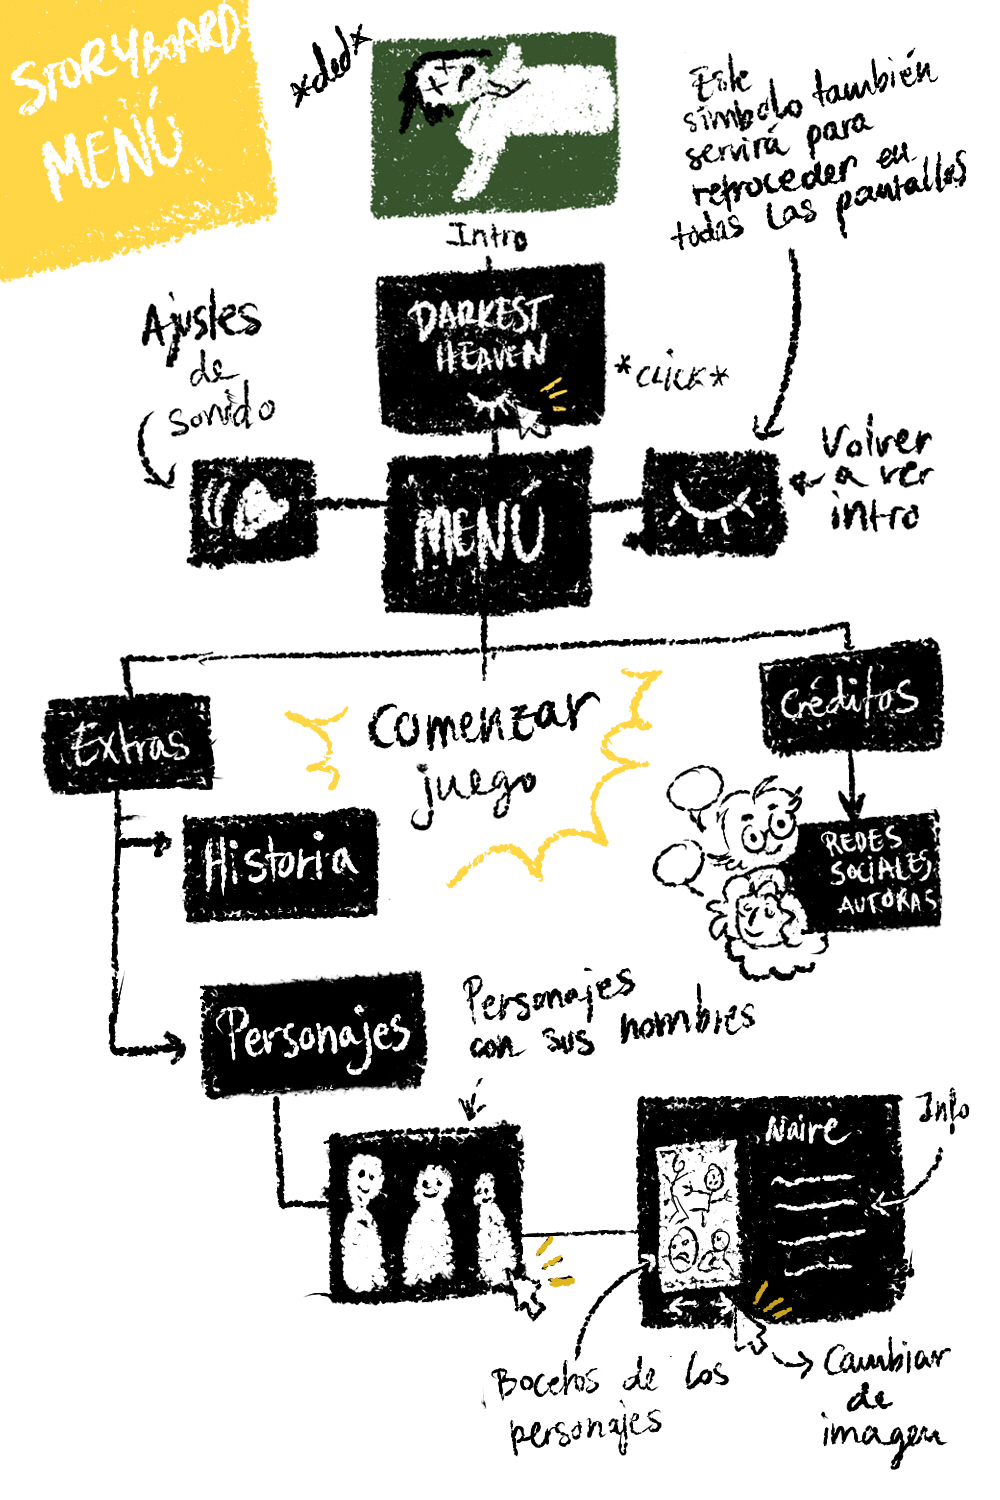 STORYBOARD
MENÚ
*ded*
Intro
Este
símbolo también
servirá para
retroceder en
todas las pantallas
DARKEST
HEAVEN
*CLICK*
Ajustes
de
sonido
MENÚ
Volver
a ver
intro
Extras
Comenzar
juego
Créditos
Historia
REDES
SOCIALES
AUTORAS
Personajes
Personajes
con sus nombres
Naire
Info
Bocetos de los
personajes
Cambiar
de
imagen